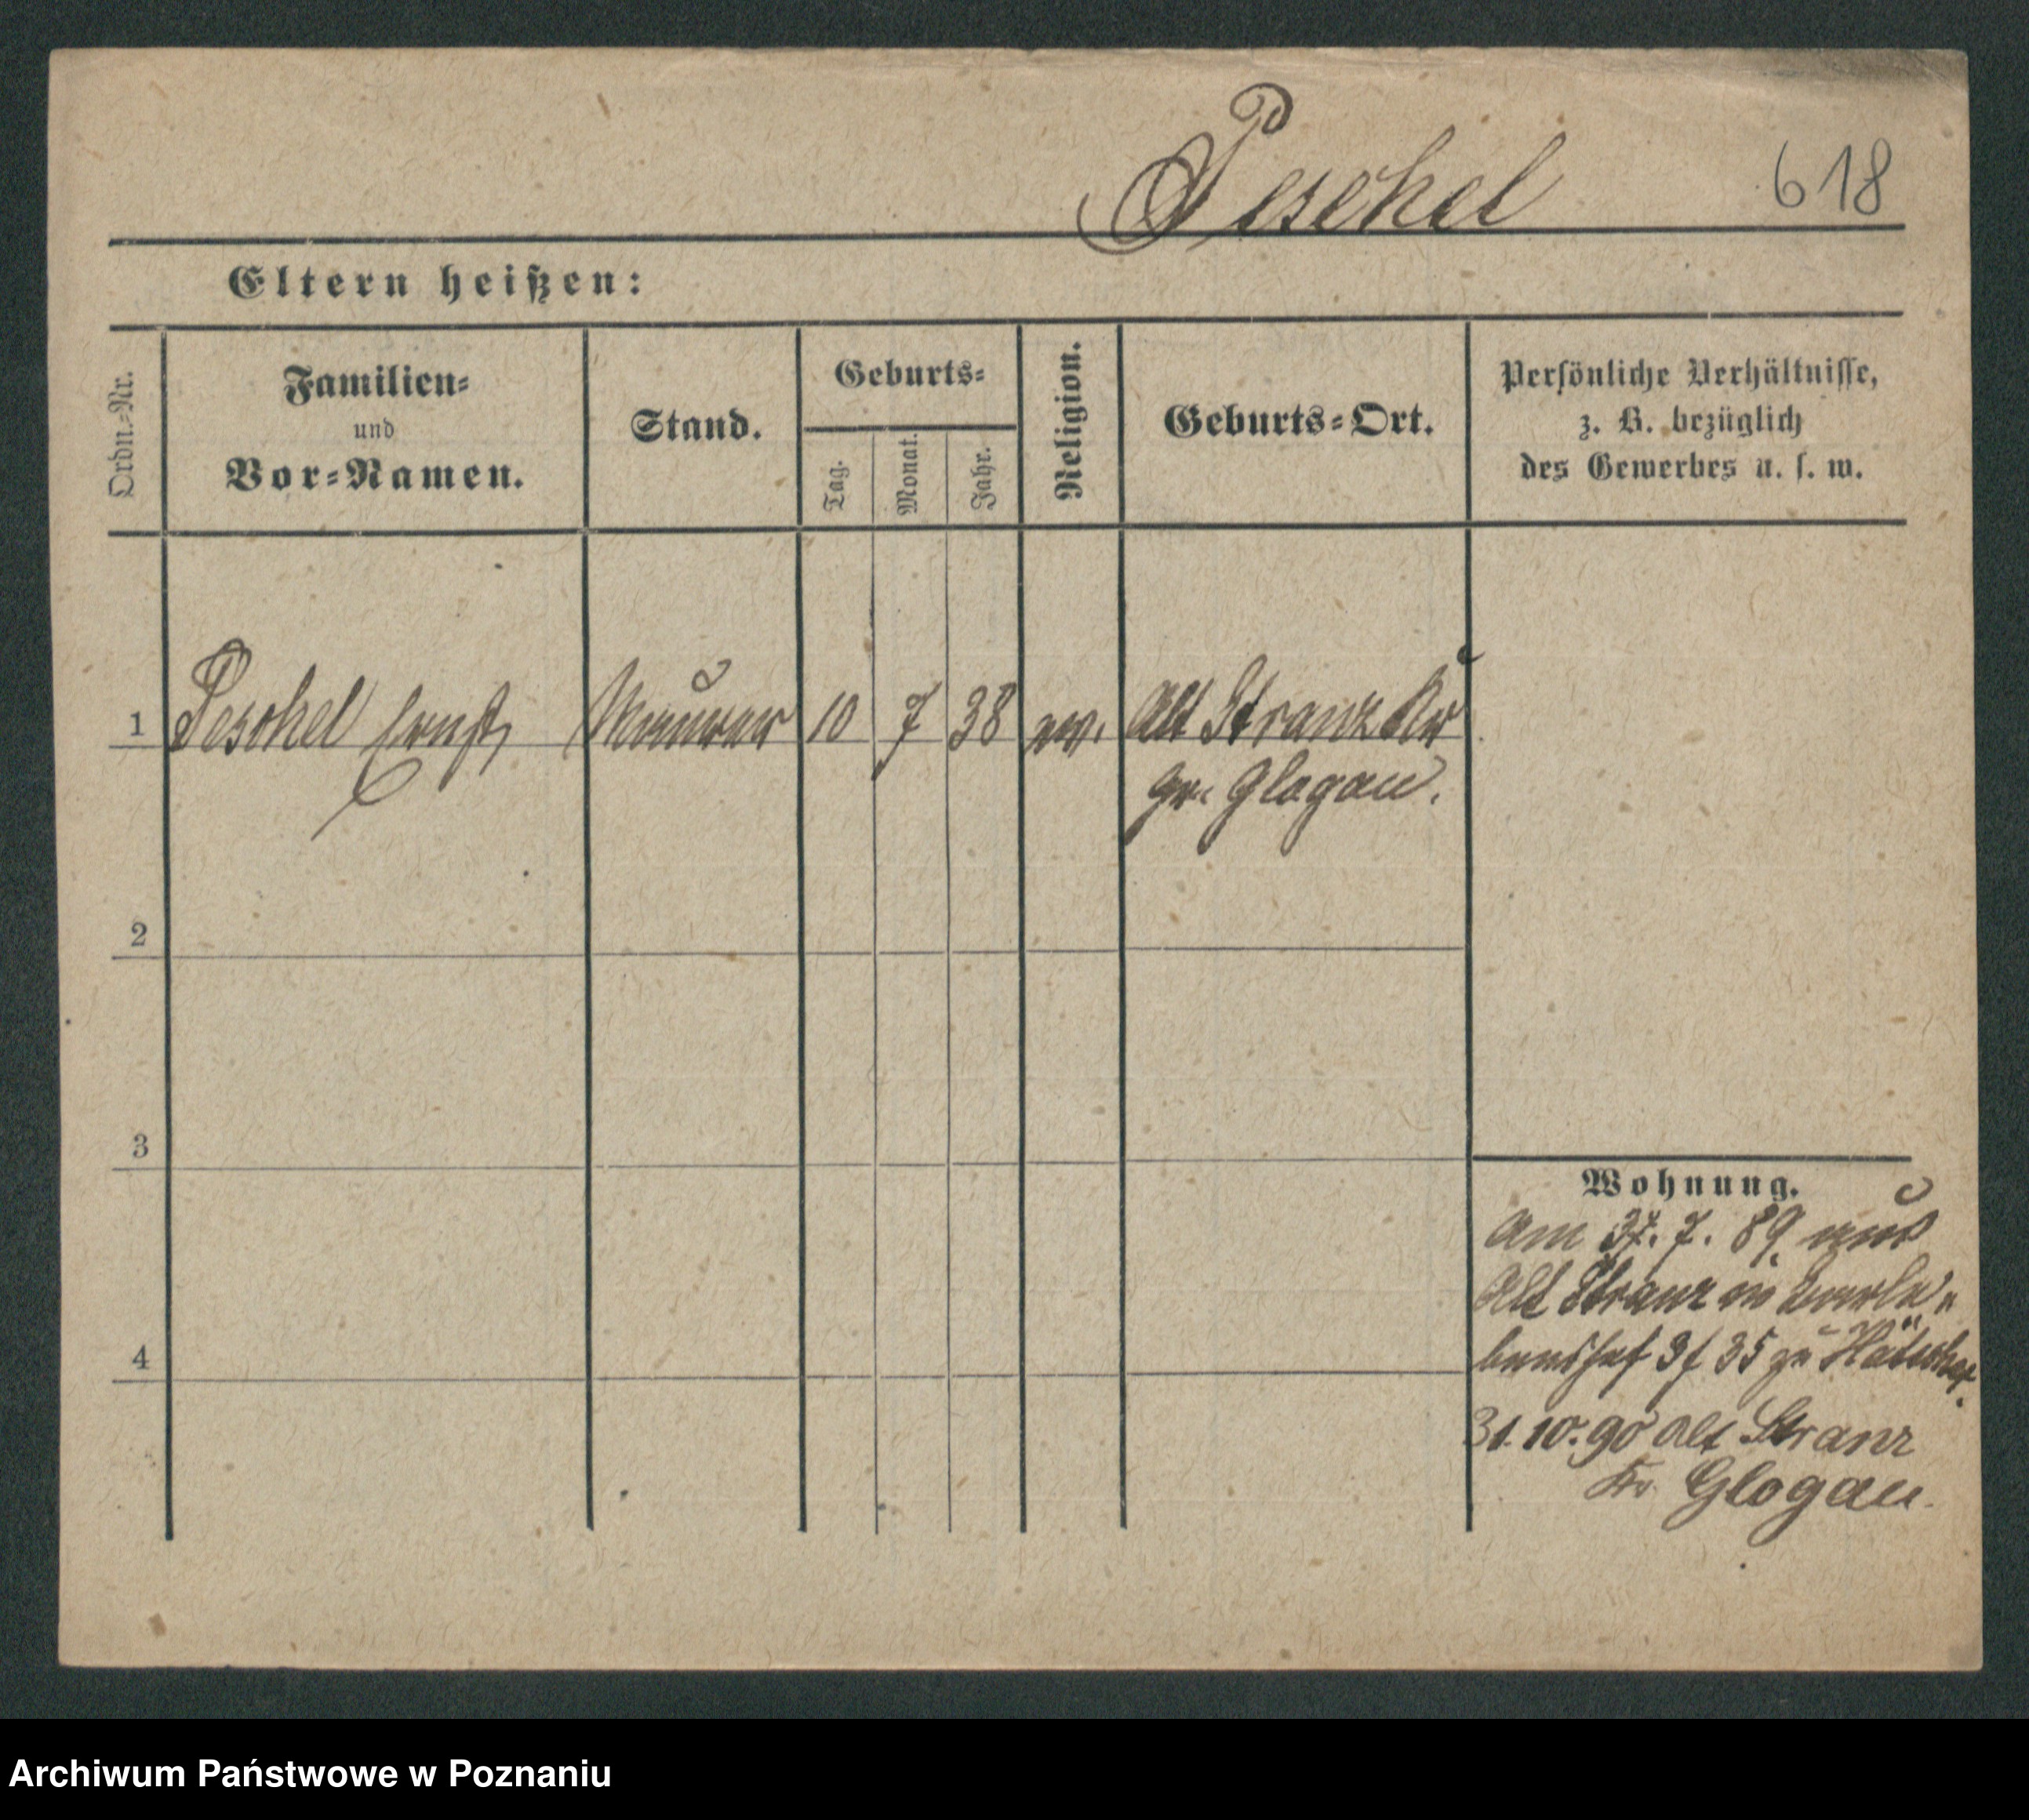 Peschel
618
Eltern heißen:
Ordn.=Nr.
Familien=
und
Vor=Namen.
Stand.
Geburts=
Tag.
Monat.
Jahr.
Religion.
Geburts=Ort.
Persönliche Verhältnisse,
z. B. bezüglich
des Gewerbes u. s. w.
1
Peschel Ernst
Maurer
10
7
38
ev.
Alt Stranz Kr
gr. Glogau.
2
3
4
Wohnung.
am 7. 89 aus
Alt Stranz in
35 zu
31.10.90 Alt Stranz
Kr. Glogau.
Archiwum Państwowe w Poznaniu